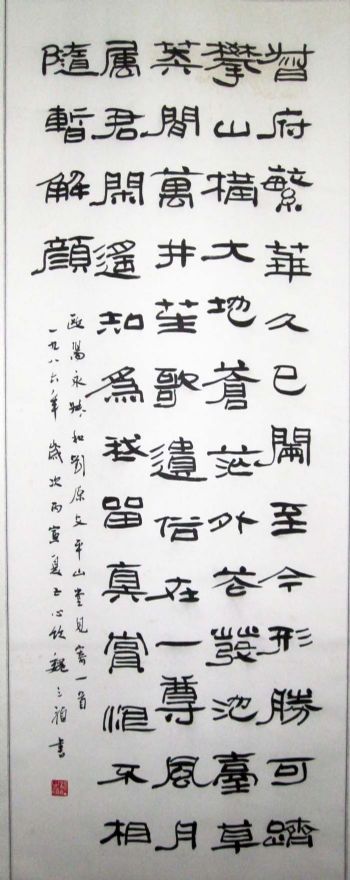 督府繁華久已闌至今形勝可躋
攀山橫大地蒼茫外花發池臺草
莽間萬井笙歌遺俗在一尊風月
属君閑遙知為我留真賞恨不相
隨暫解顏
欧陽永叔和劉原父平山堂見寄一首
一九八六年歲次丙寅夏魏之禎書